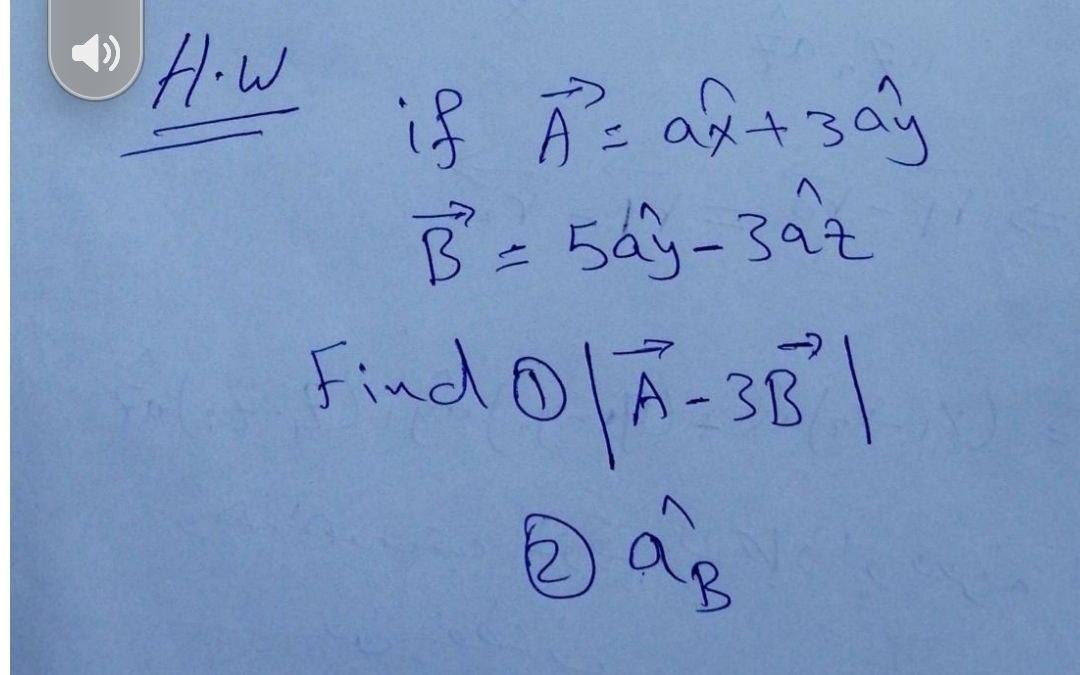 H.W
if A⃗ = âx + 3ây
B⃗ = 5ây - 3âz
Find ① |A⃗ - 3B⃗|
② â_B